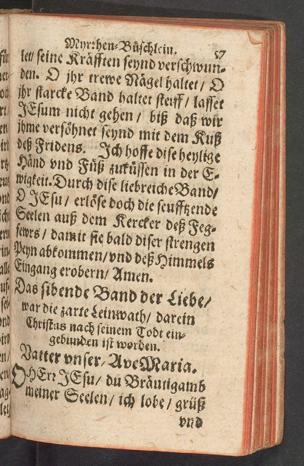 Myrrhen-Büschlein. 57
let/ seine Kräfften seynd verschwun-
den. O jhr trewe Nägel haltet/ O
jhr starcke Band haltet steiff/ lasset
JEsum nicht gehen/ biß daß wir
jhme versöhnet seynd mit dem Kuß
deß Fridens. Jch hoffe dise heylige
Händ vnd Füß zuküssen in der E-
wigkeit. Durch dise liebreiche Band/
O JEsu/ erlöse doch die seufftzende
Seelen auß dem Kercker deß Feg-
fewrs/ damit sie bald diser strengen
Peyn abkommen/ vnd deß Himmels
Eingang erobern/ Amen.
Das sibende Band der Liebe/
war die zarte Leinwath/ darein
Christus nach seinem Todt ein-
gebunden ist worden.
Vatter vnser/ Ave Maria.
O HErr JEsu/ du Bräutigamb
meiner Seelen/ ich lobe/ grüß
vnd